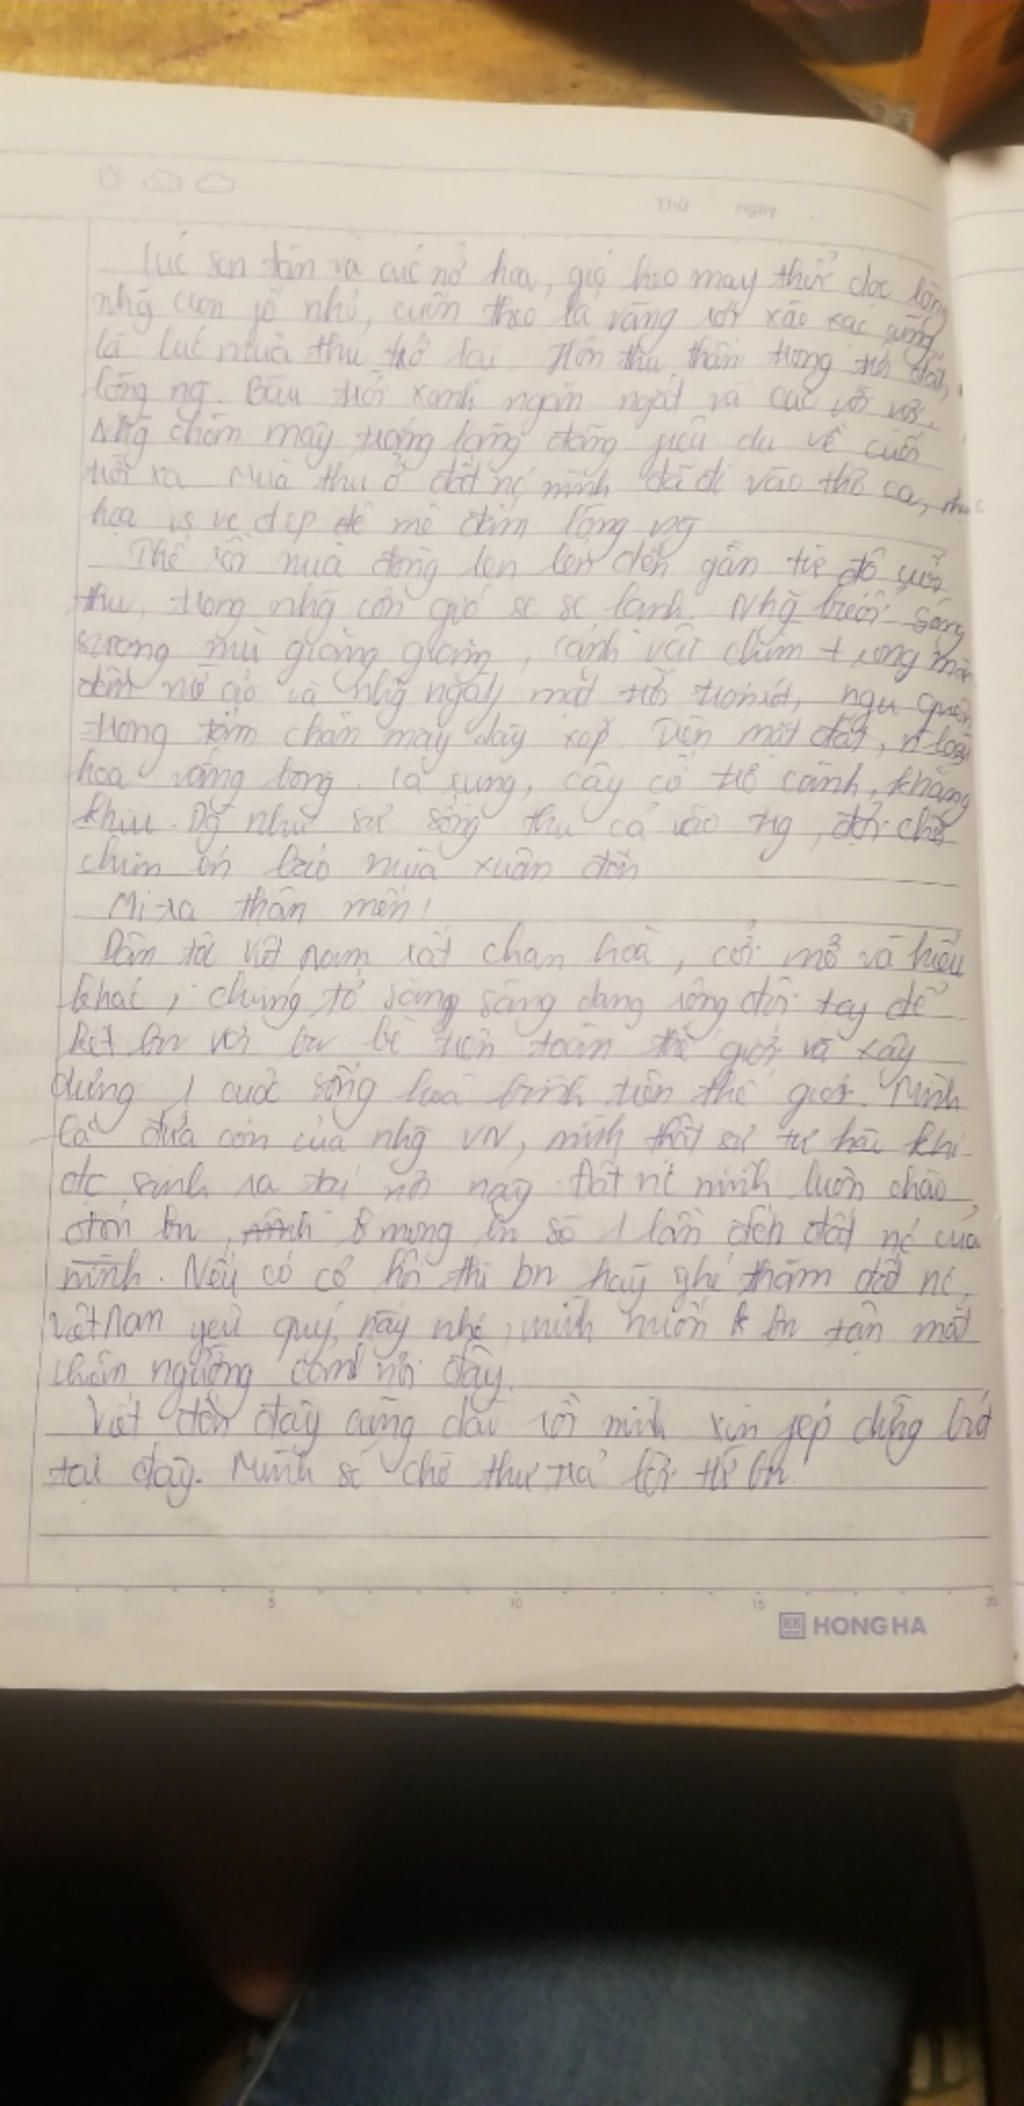 Thứ ngày
lúc sen tàn và cúc nở hoa, gió heo may thổi dọc
nhg cơn gió nhỏ, cuốn theo lá vàng rơi xào xạc, cũng
là lúc mùa thu trở lại. Hồn thu thấm trong trời đất,
lòng ng. Bầu trời xanh ngăn ngắt và cao vời vợi.
Nhg chòm mây trắng lang đãng phiêu du về cuối
trời xa. Mùa thu ở đất nc mình đã đi vào thơ ca,
họa vs vẻ đẹp để mê đắm lòng ng
Thế rồi mùa đông len lén đến gần
thu, trong nhg cơn gió se se lạnh. Nhg buổi sáng
sương mù giăng giăng, cảnh vật chìm trong màn
đêm mờ ảo và nhg ngày mặt trời trốn rét, ngủ quên
trong tấm chăn mây dày xốp. Trên mặt đất, n loài
hoa vắng bóng. Lá rụng, cây cối trơ cành, khẳng
khiu. Dg như sự sống thu cả vào trg, đợi chờ
chim én báo mùa xuân đến
Mi-ra thân mến!
Dân tộc Việt Nam rất chan hoà, cởi mở và hiếu
khác, chúng tớ sẵng sàng dang rộng đôi tay để
kết bn với bn bè trên toàn thế giới và xây
dựng 1 cuộc sống hoà bình trên thế giới. Mình
là đứa con của nhg VN, mình thật sự tự hào khi
đc sinh ra tại nơi này. Đất nc mình luôn chào
đón bn, mong bn sẽ 1 lần đến đất nc của
mình. Nếu có cơ hội thì bn hãy ghé thăm đất nc
Việt Nam yêu quý này nhé, mình muốn bn tận mắt
chiêm ngưỡng nơi đây.
Viết đến đây cũng dài rồi mình xin phép dừng bút
tại đây. Mình sẽ chờ thư trả lời từ bn.
5 10 15 20
HH HONG HA